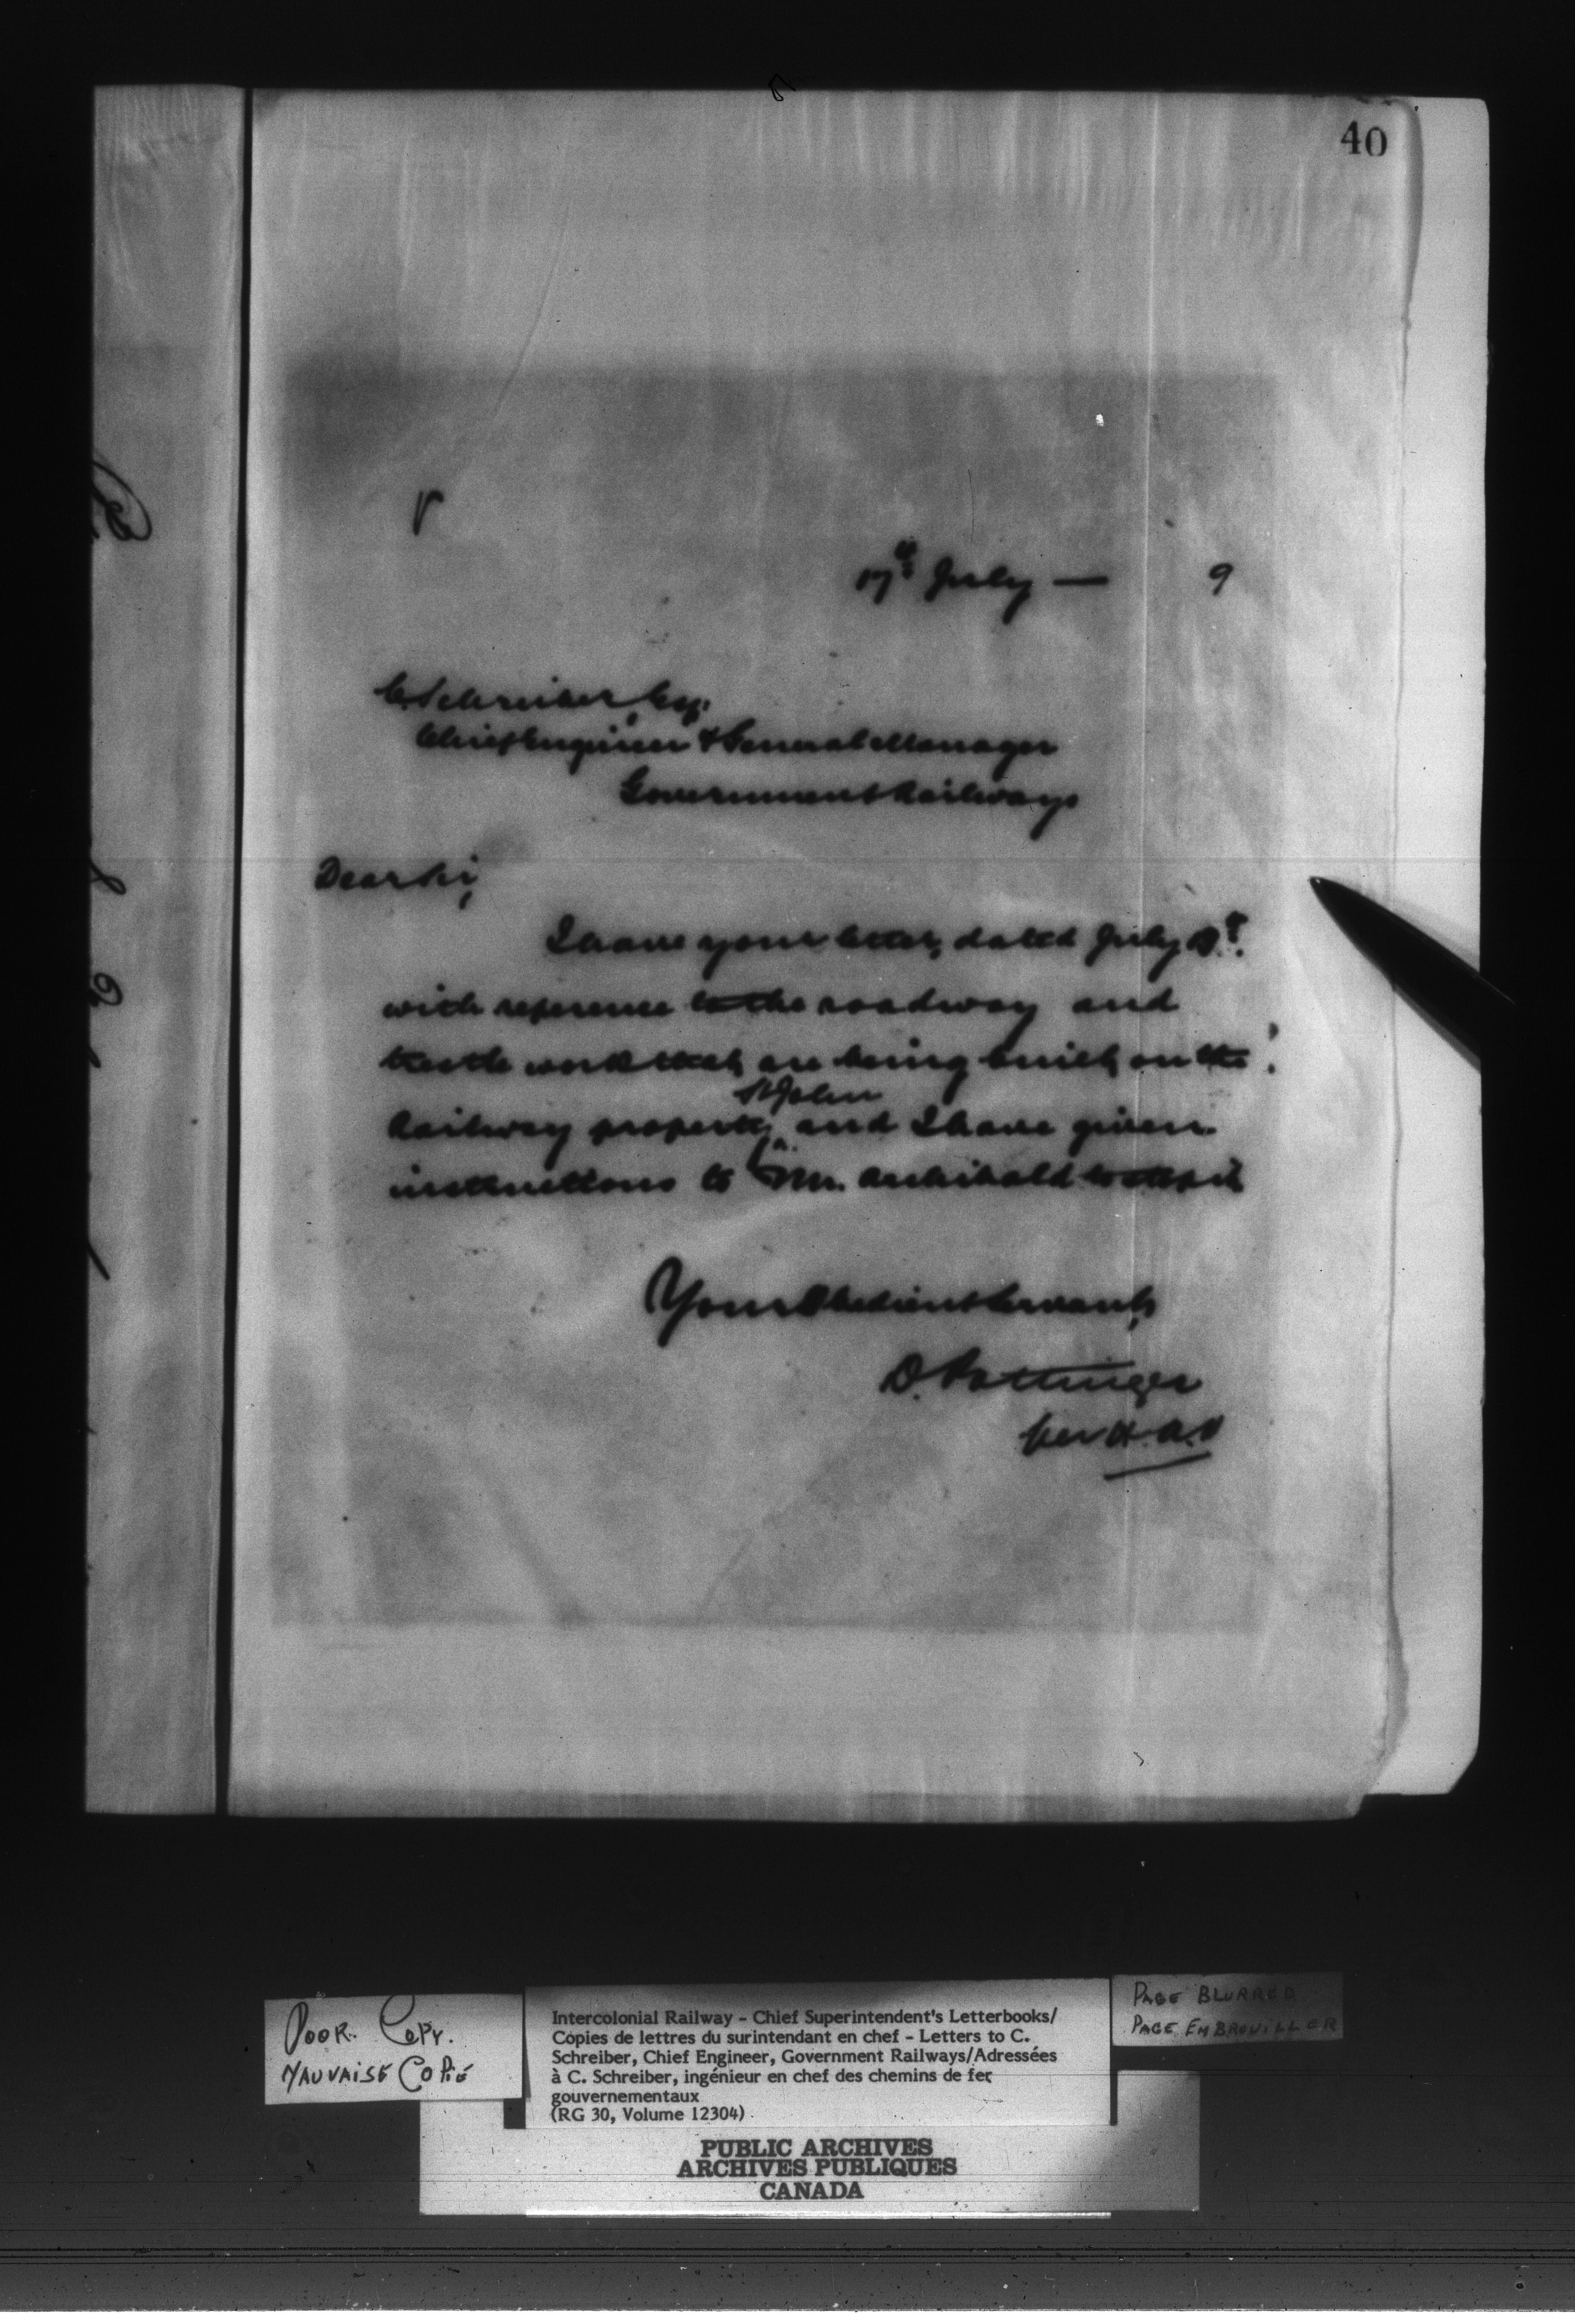 40
17th July — 9
C. Schreiber, Esq.
Chief Engineer & General Manager
Government Railways
Dear Sir,
I have your letter, dated July
with reference to the roadway and
trestle work that are being built on the
St John
Railway property, and I have given
instructions to Mr. Archibald to stop it
Your Obedient Servant,
D. Pottinger
per
POOR COPY.
MAUVAISE COPIE
Intercolonial Railway - Chief Superintendent's Letterbooks/
Copies de lettres du surintendant en chef - Letters to C.
Schreiber, Chief Engineer, Government Railways/Adressées
à C. Schreiber, ingénieur en chef des chemins de fer
gouvernementaux
(RG 30, Volume 12304)
PAGE BLURRED
PAGE EMBROUILLER
PUBLIC ARCHIVES
ARCHIVES PUBLIQUES
CANADA